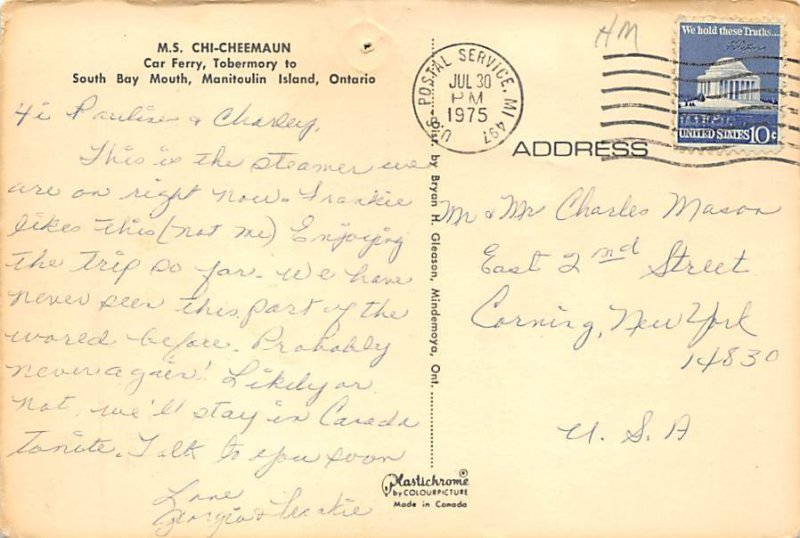 M.S. CHI-CHEEMAUN
Car Ferry, Tobermory to
South Bay Mouth, Manitoulin Island, Ontario
Hi Pauline & Charley,
This is the steamer we
are on right now. Frankie
likes this (not me) Enjoying
the trip so far. We have
never seen this part of the
world before. Probably
never again! Likely or
not, we'll stay in Canada
tonite. Talk to you soon
Love
Georgia & Frankie
Dist. by Bryan H. Gleason, Mindemoya, Ont.
Plastichrome
by COLOURPICTURE
Made in Canada
HM
U.S. POSTAL SERVICE, MI 497
JUL 30
PM
1975
We hold these Truths...
UNITED STATES 10c
ADDRESS
Mr & Mrs Charles Mason
East 2nd Street
Corning, New York
14830
U. S. A